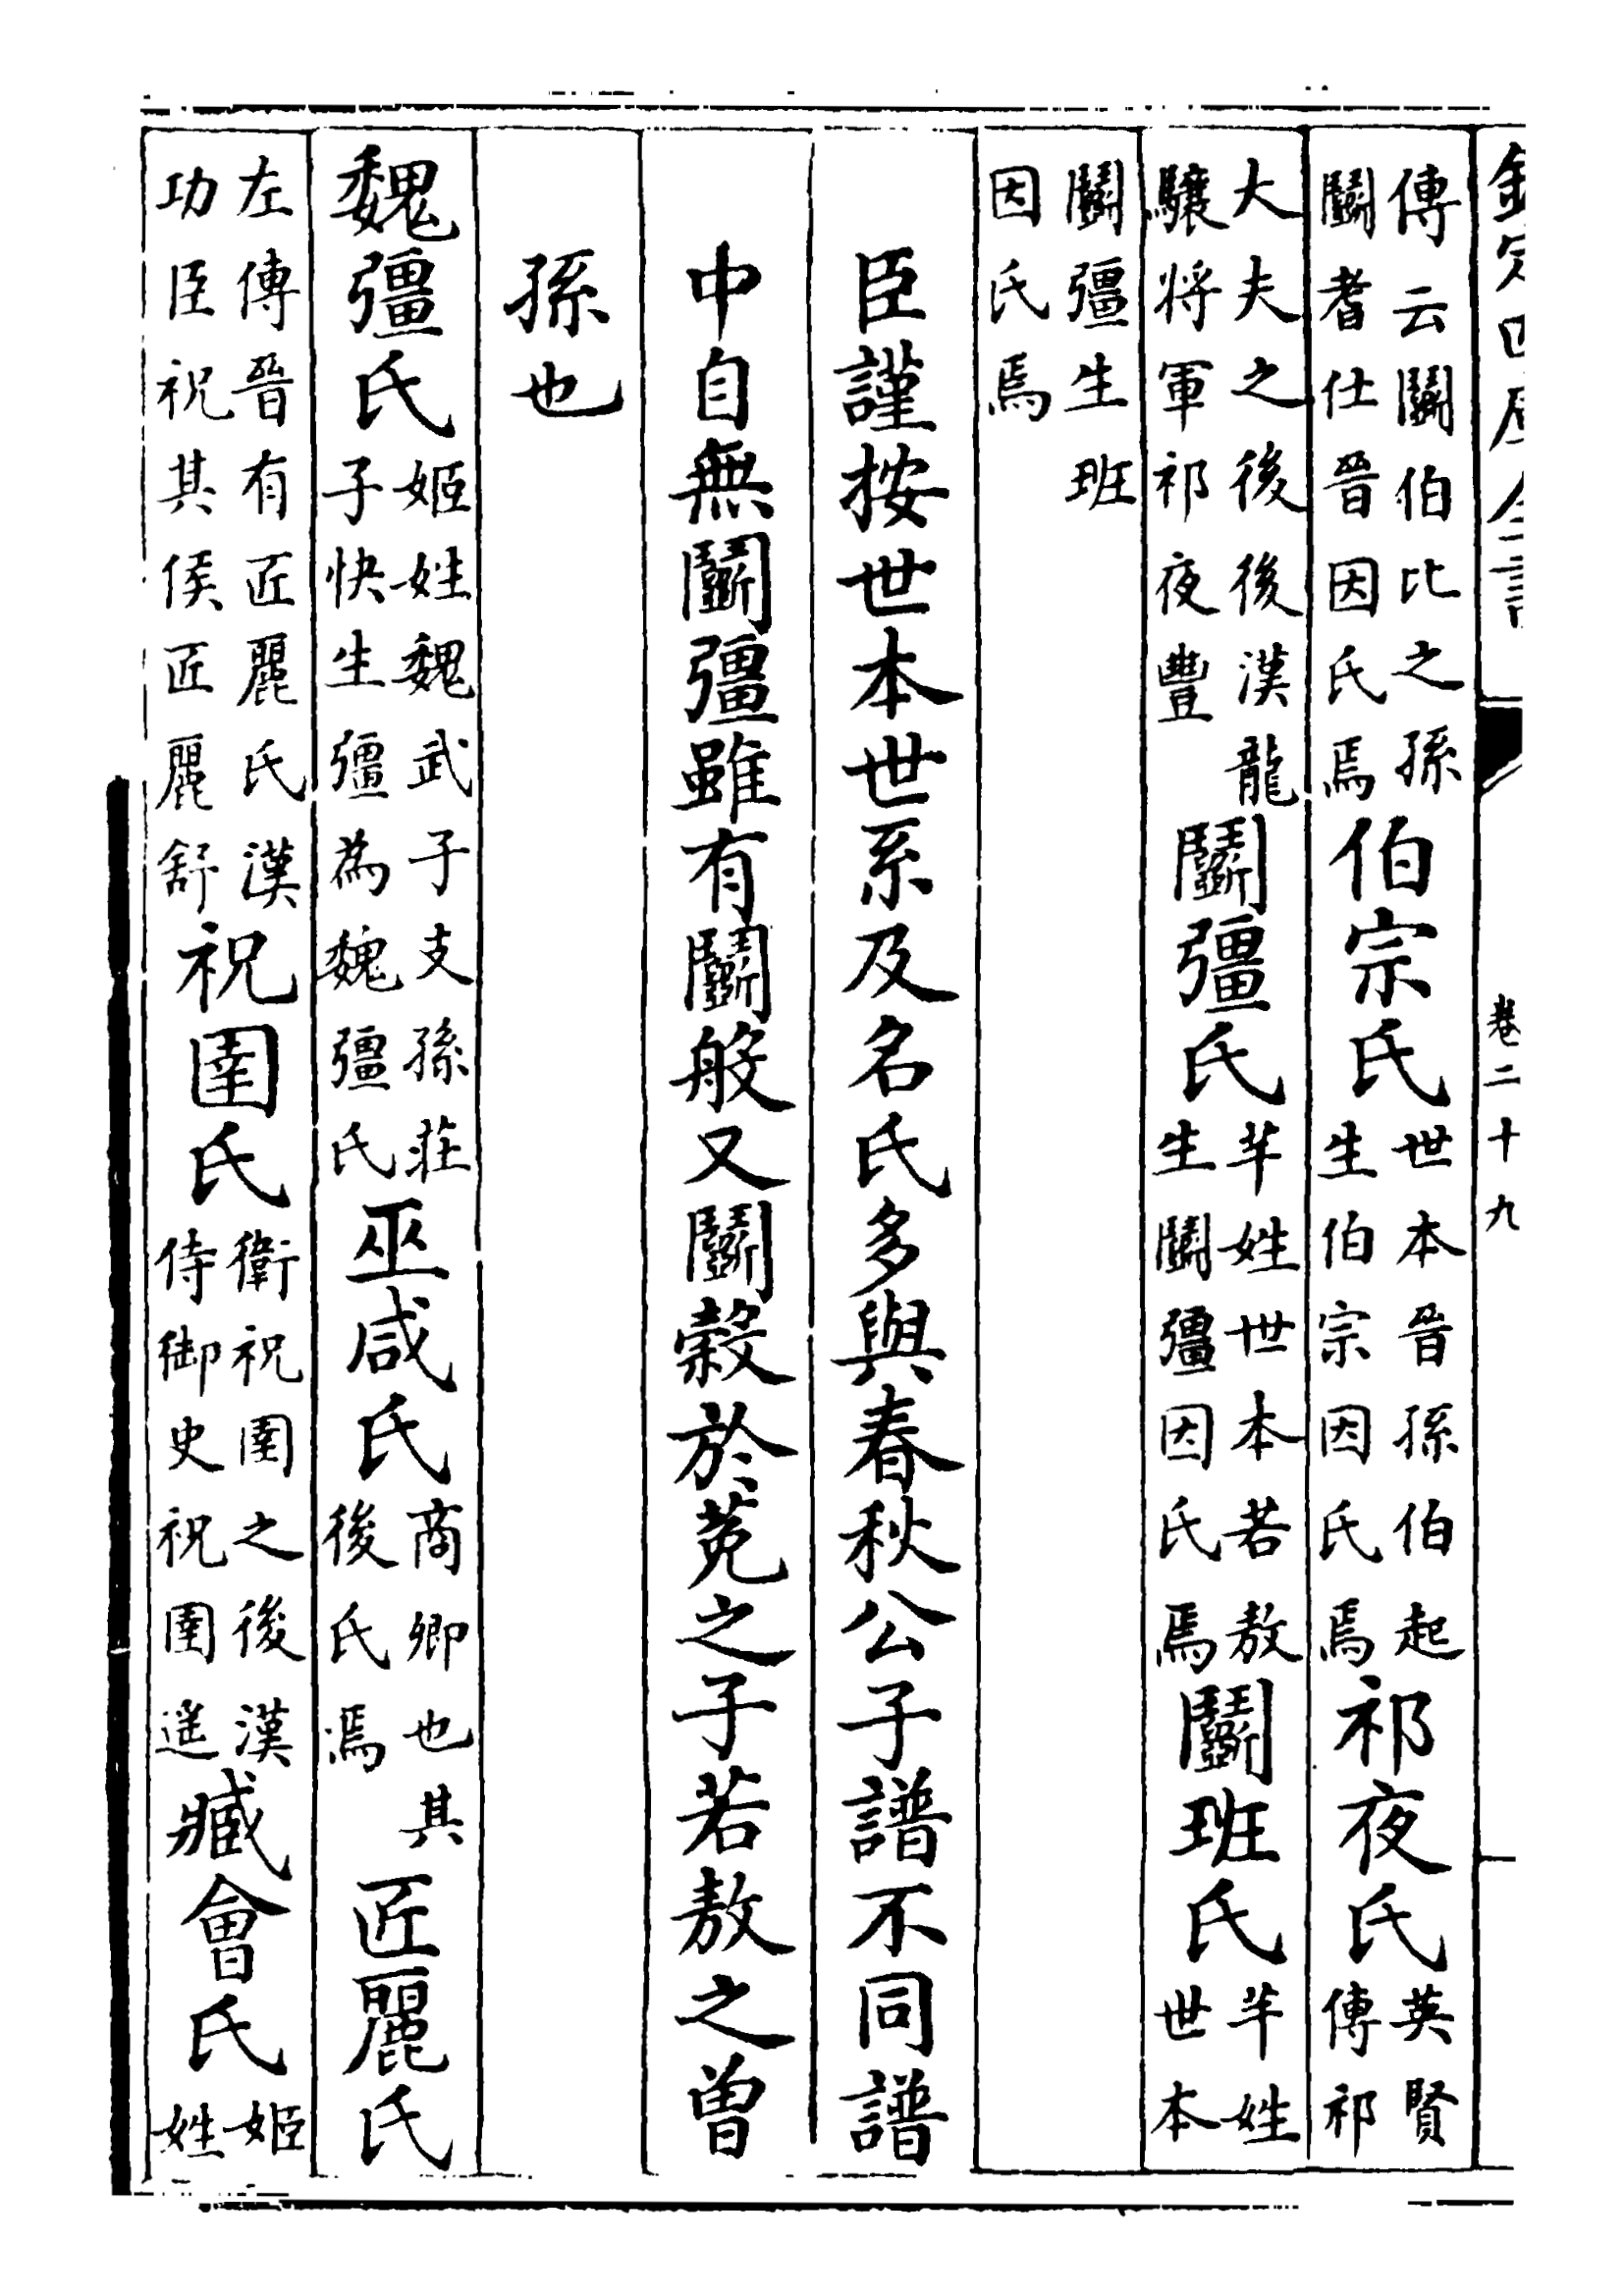 欽定四庫全書 卷二十九
傳云鬭伯比之孫鬭耆仕晉因氏焉伯宗氏世本晉孫伯起生伯宗因氏焉祁夜氏英賢傳祁
大夫之後後漢龍驤將軍祁夜豐鬭彊氏芈姓世本若敖生鬭彊因氏焉鬭班氏芈姓世本
鬭彊生班因氏焉
臣謹按世本世系及名氏多與春秋公子譜不同譜
中自無鬭彊雖有鬭般又鬭穀於菟之子若敖之曾
孫也
魏彊氏姬姓魏武子支孫莊子快生彊為魏彊氏巫咸氏商卿也其後氏焉匠麗氏
左傳晉有匠麗氏漢功臣祝其侯匠麗舒祝圉氏衛祝圉之後漢侍御史祝圉遥臧會氏姬姓